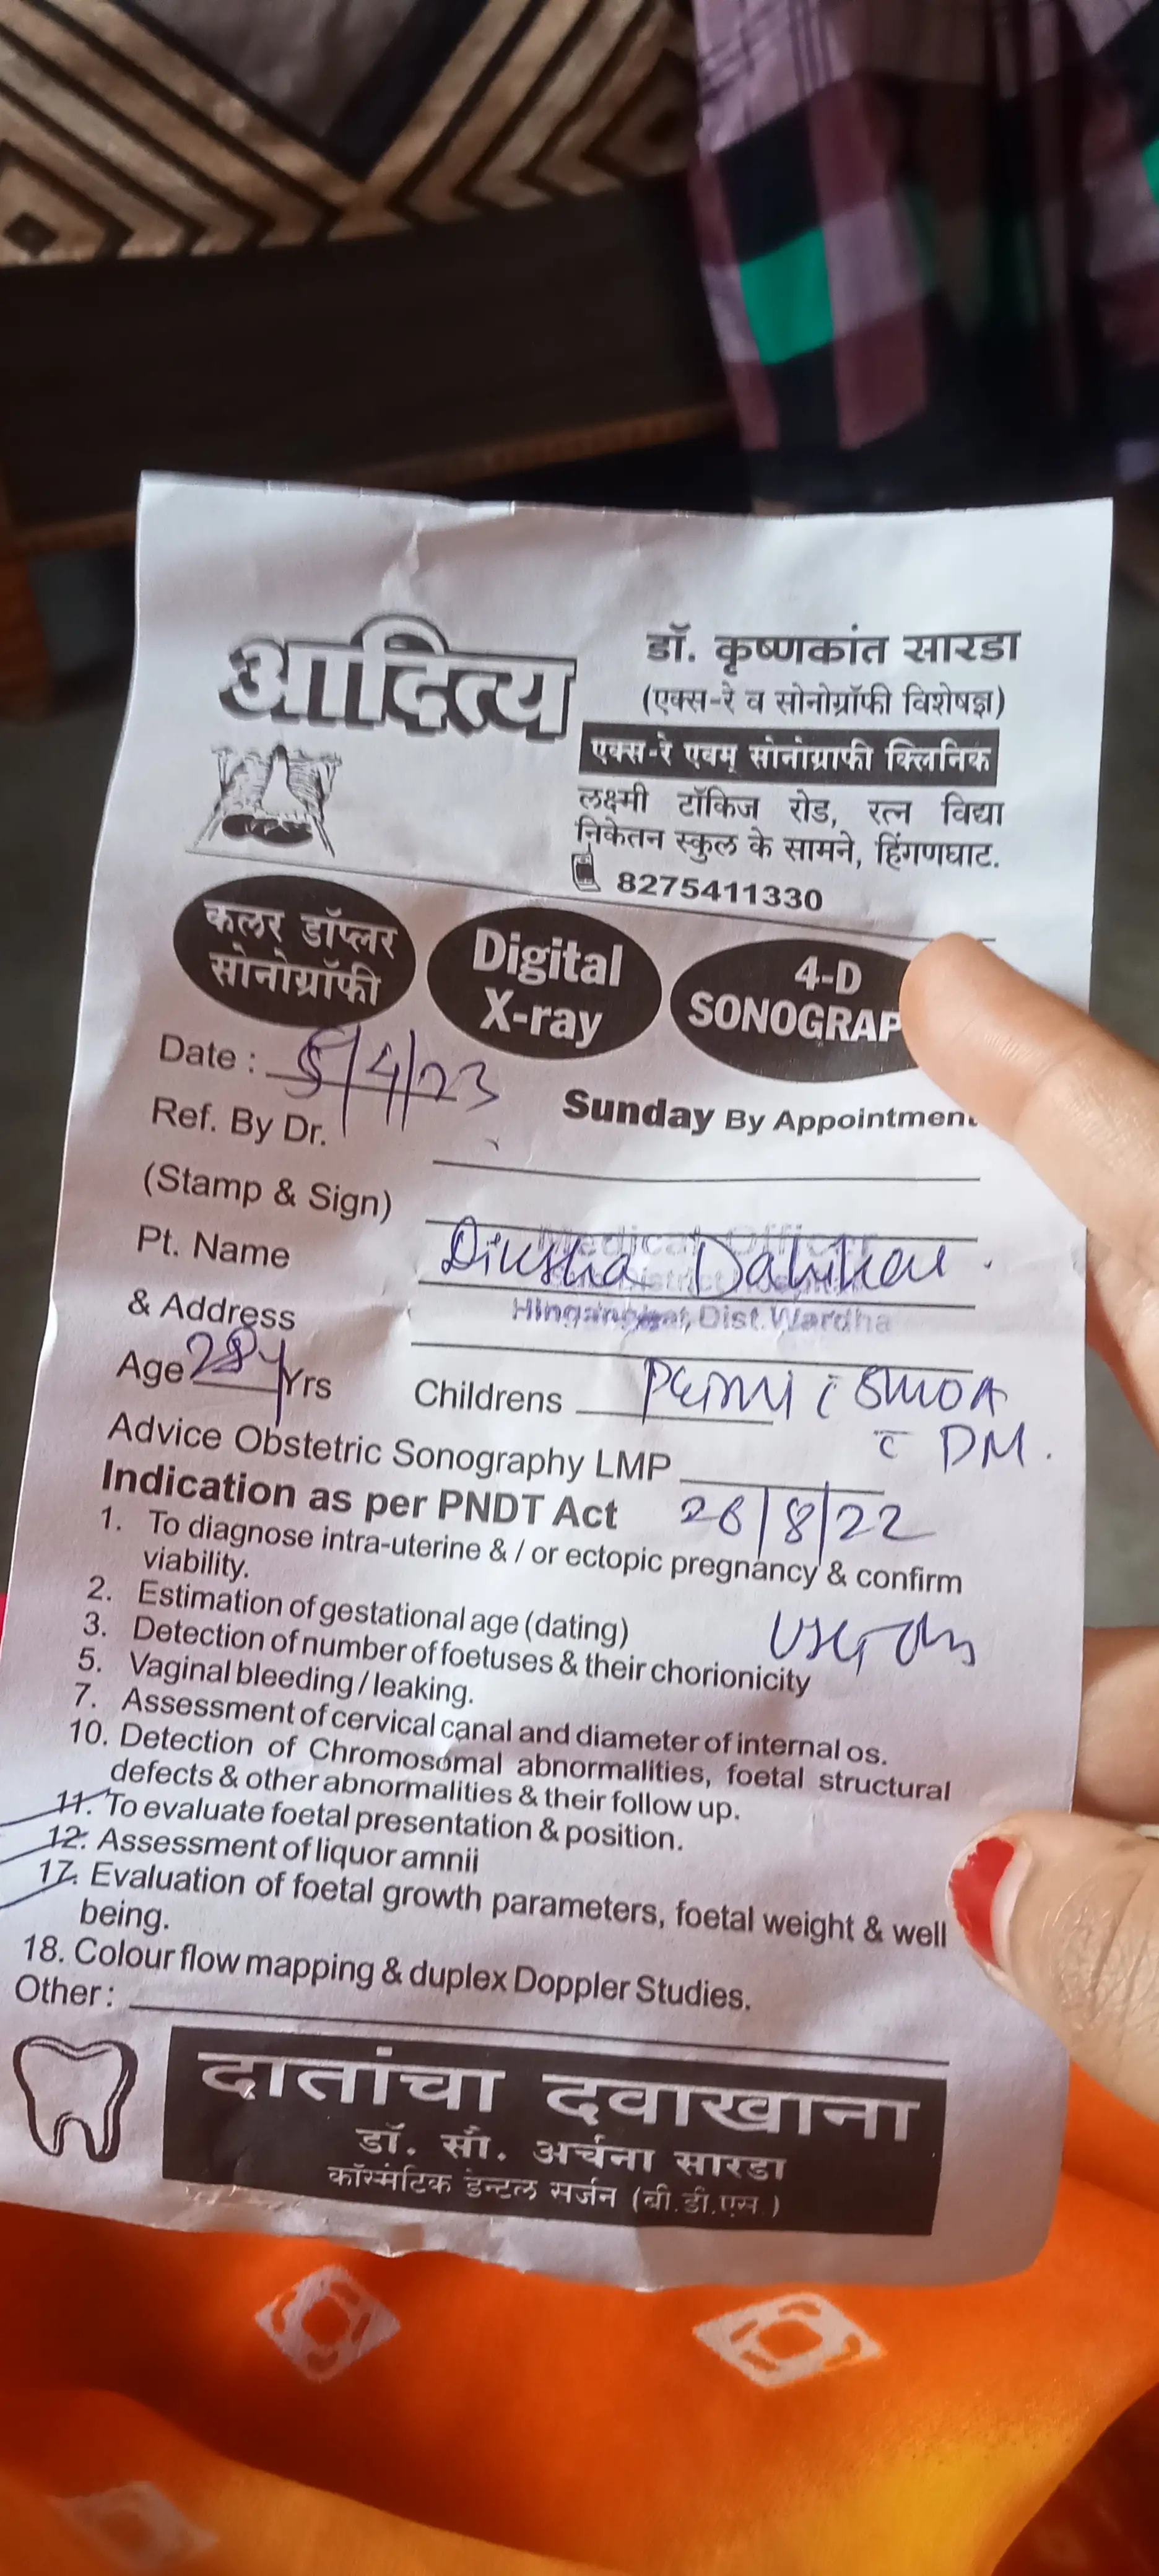 आदित्य
डॉ. कृष्णकांत सारडा
(एक्स-रे व सोनोग्रॉफी विशेषज्ञ)
एक्स-रे एवम् सोनोग्राफी क्लिनिक
लक्ष्मी टॉकिज रोड, रत्न विद्या
निकेतन स्कुल के सामने, हिंगणघाट.
8275411330
कलर डॉप्लर
सोनोग्रॉफी
Digital
X-ray
4-D
SONOGRAP
Date : 5/4/23
Sunday By Appointment
Ref. By Dr.
(Stamp & Sign)
Medical Officer
Pt. Name
& Address
Dist. Wardha
Age 28 Yrs
Childrens
DM.
Advice Obstetric Sonography LMP
Indication as per PNDT Act 26/8/22
1. To diagnose intra-uterine & / or ectopic pregnancy & confirm
viability.
2. Estimation of gestational age (dating)
3. Detection of number of foetuses & their chorionicity
5. Vaginal bleeding / leaking.
7. Assessment of cervical canal and diameter of internal os.
10. Detection of Chromosomal abnormalities, foetal structural
defects & other abnormalities & their follow up.
11. To evaluate foetal presentation & position.
12. Assessment of liquor amnii
17. Evaluation of foetal growth parameters, foetal weight & well
being.
18. Colour flow mapping & duplex Doppler Studies.
Other :
दातांचा दवाखाना
डॉ. सौ. अर्चना सारडा
कॉस्मॅटिक डेन्टल सर्जन (बी.डी.एस.)